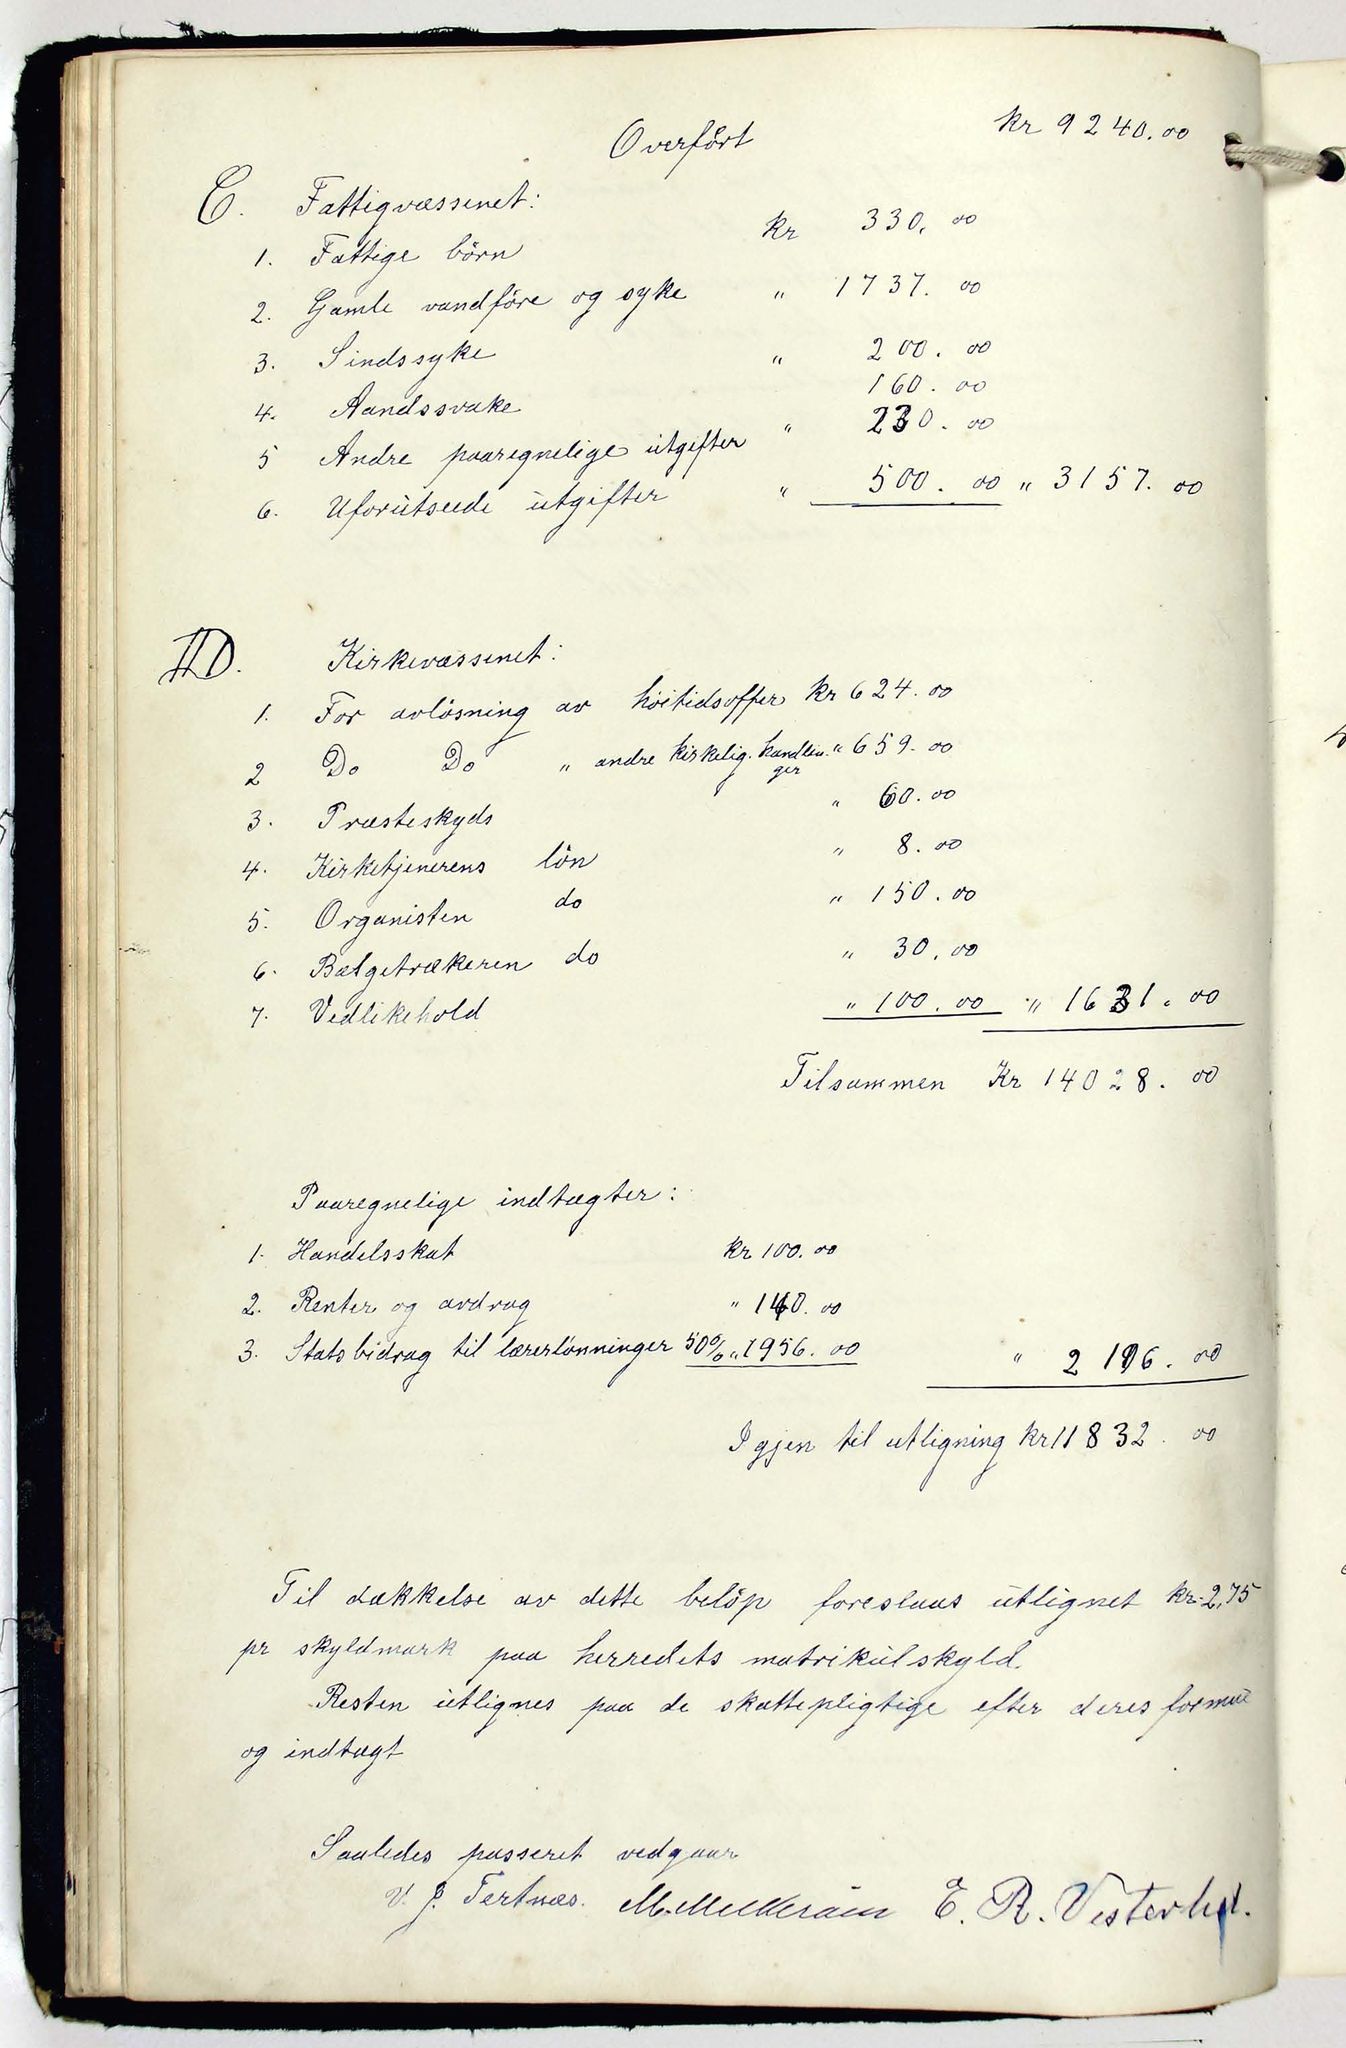 Overført kr 9240.00
C. Fattigvæssenet:
1. Fattige børn kr 330.00
2. Gamle vandføre og syke " 1737.00
3. Sindssyke " 200.00
4. Aandssvake 160.00
5 Andre paaregnelige utgifter " 230.00
6. Uforutseede utgifter " 500.00 " 3157.00
D. Kirkevæssenet:
1. For avløsning av høitidsoffer kr 624.00
2 Do Do " andre kirkelig. handlin- " 659.00
ger
3. Præsteskyds " 60.00
4. Kirketjenerens løn " 8.00
5. Organisten do " 150.00
6. Bælgetrækeren do " 30.00
7. Vedlikehold " 100.00 " 1631.00
Tilsammen Kr 14028.00
Paaregnelige indtægter:
1. Handelsskat kr 100.00
2. Renter og avdrag " 140.00
3. Statsbidrag til lærerlønninger 50% " 1956.00 " 2196.00
Igjen til utligning kr 11832.00
Til dækkelse av dette beløp foreslaas utlignet kr. 2,75
pr skyldmark paa herredets matrikulskyld.
Resten utlignes paa de skattepligtige efter deres formue
og indtægt
Saaledes passeret vedgaar
V. J. Tertnæs. E. R. Vesterlid.